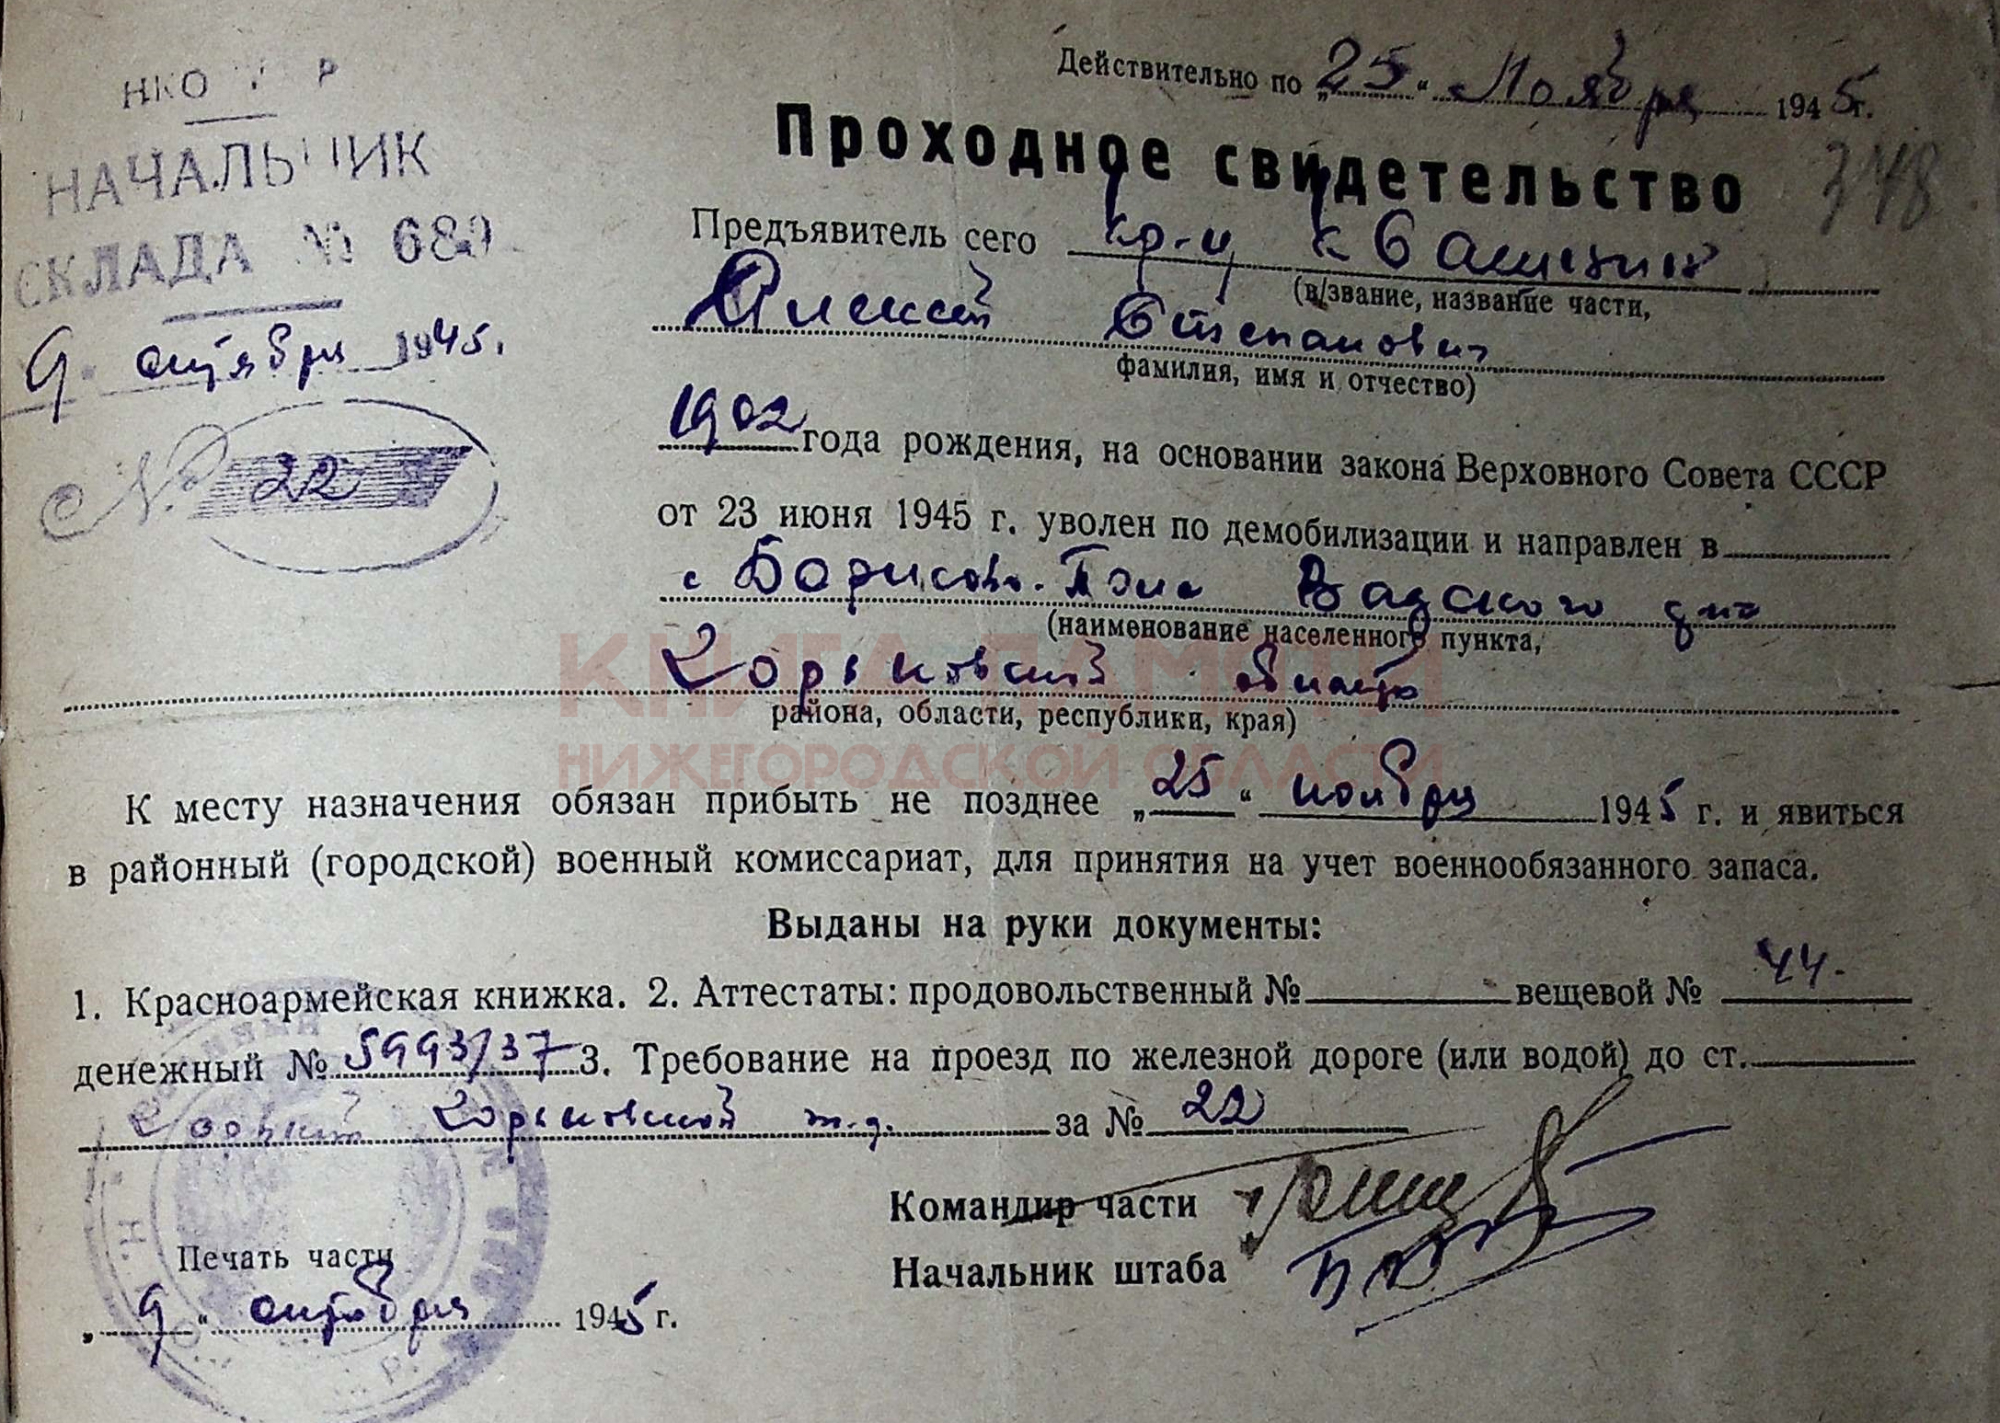 Действительно по „25“ Ноября 1945г.
НКО
НАЧАЛЬНИК
СКЛАДА №
9 октября 1945.
№ 22
Проходное свидетельство
348
Предъявитель сего кр-ц Квашнин
(в/звание, название части,
Алексей Степанович
фамилия, имя и отчество)
1902 года рождения, на основании закона Верховного Совета СССР
от 23 июня 1945 г. уволен по демобилизации и направлен в
с Борисово-Поле Вадского
(наименование населенного пункта,
Горьковской область
района, области, республики, края)
КНИГА ПАМЯТИ
НИЖЕГОРОДСКОЙ ОБЛАСТИ
К месту назначения обязан прибыть не позднее „25“ ноября 1945 г. и явиться
в районный (городской) военный комиссариат, для принятия на учет военнообязанного запаса.
Выданы на руки документы:
1. Красноармейская книжка. 2. Аттестаты: продовольственный № вещевой № 44.
денежный № 5993/37 3. Требование на проезд по железной дороге (или водой) до ст.
Горький Горьковской ж.д. за № 22
Командир части
Начальник штаба
Печать части
„9“ октября 1945 г.